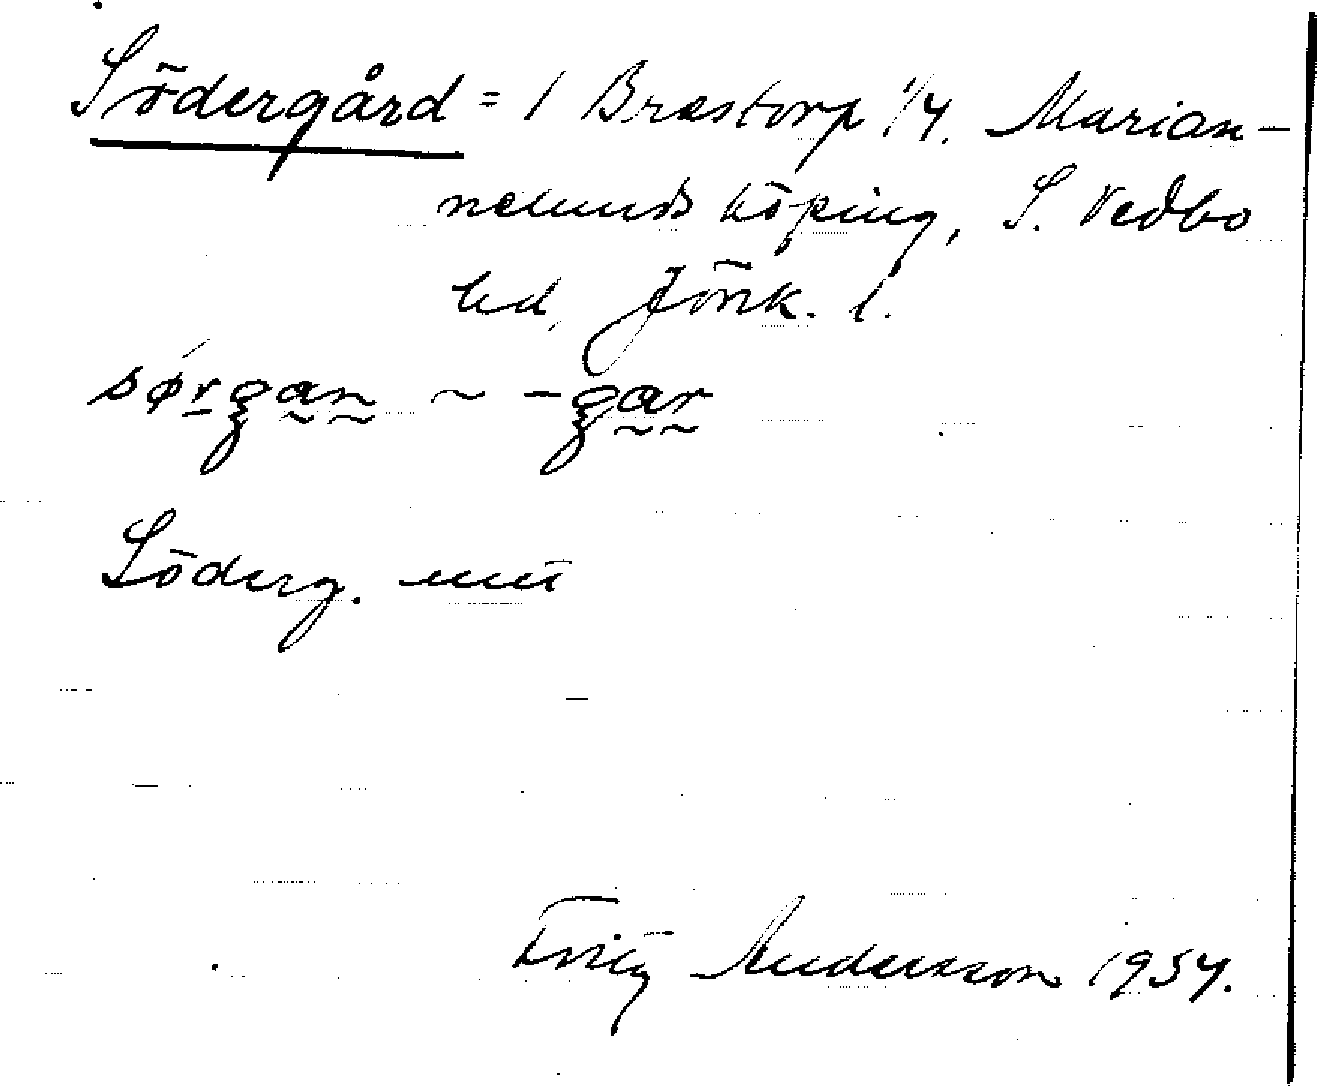 Södergård = 1 Brostorp 1/4. Marian-
nelunds köping, S. Vedbo
hd, Jönk. l.
sørgan ~ -gar
Söderg. mi
Fritz Andersson 1954.